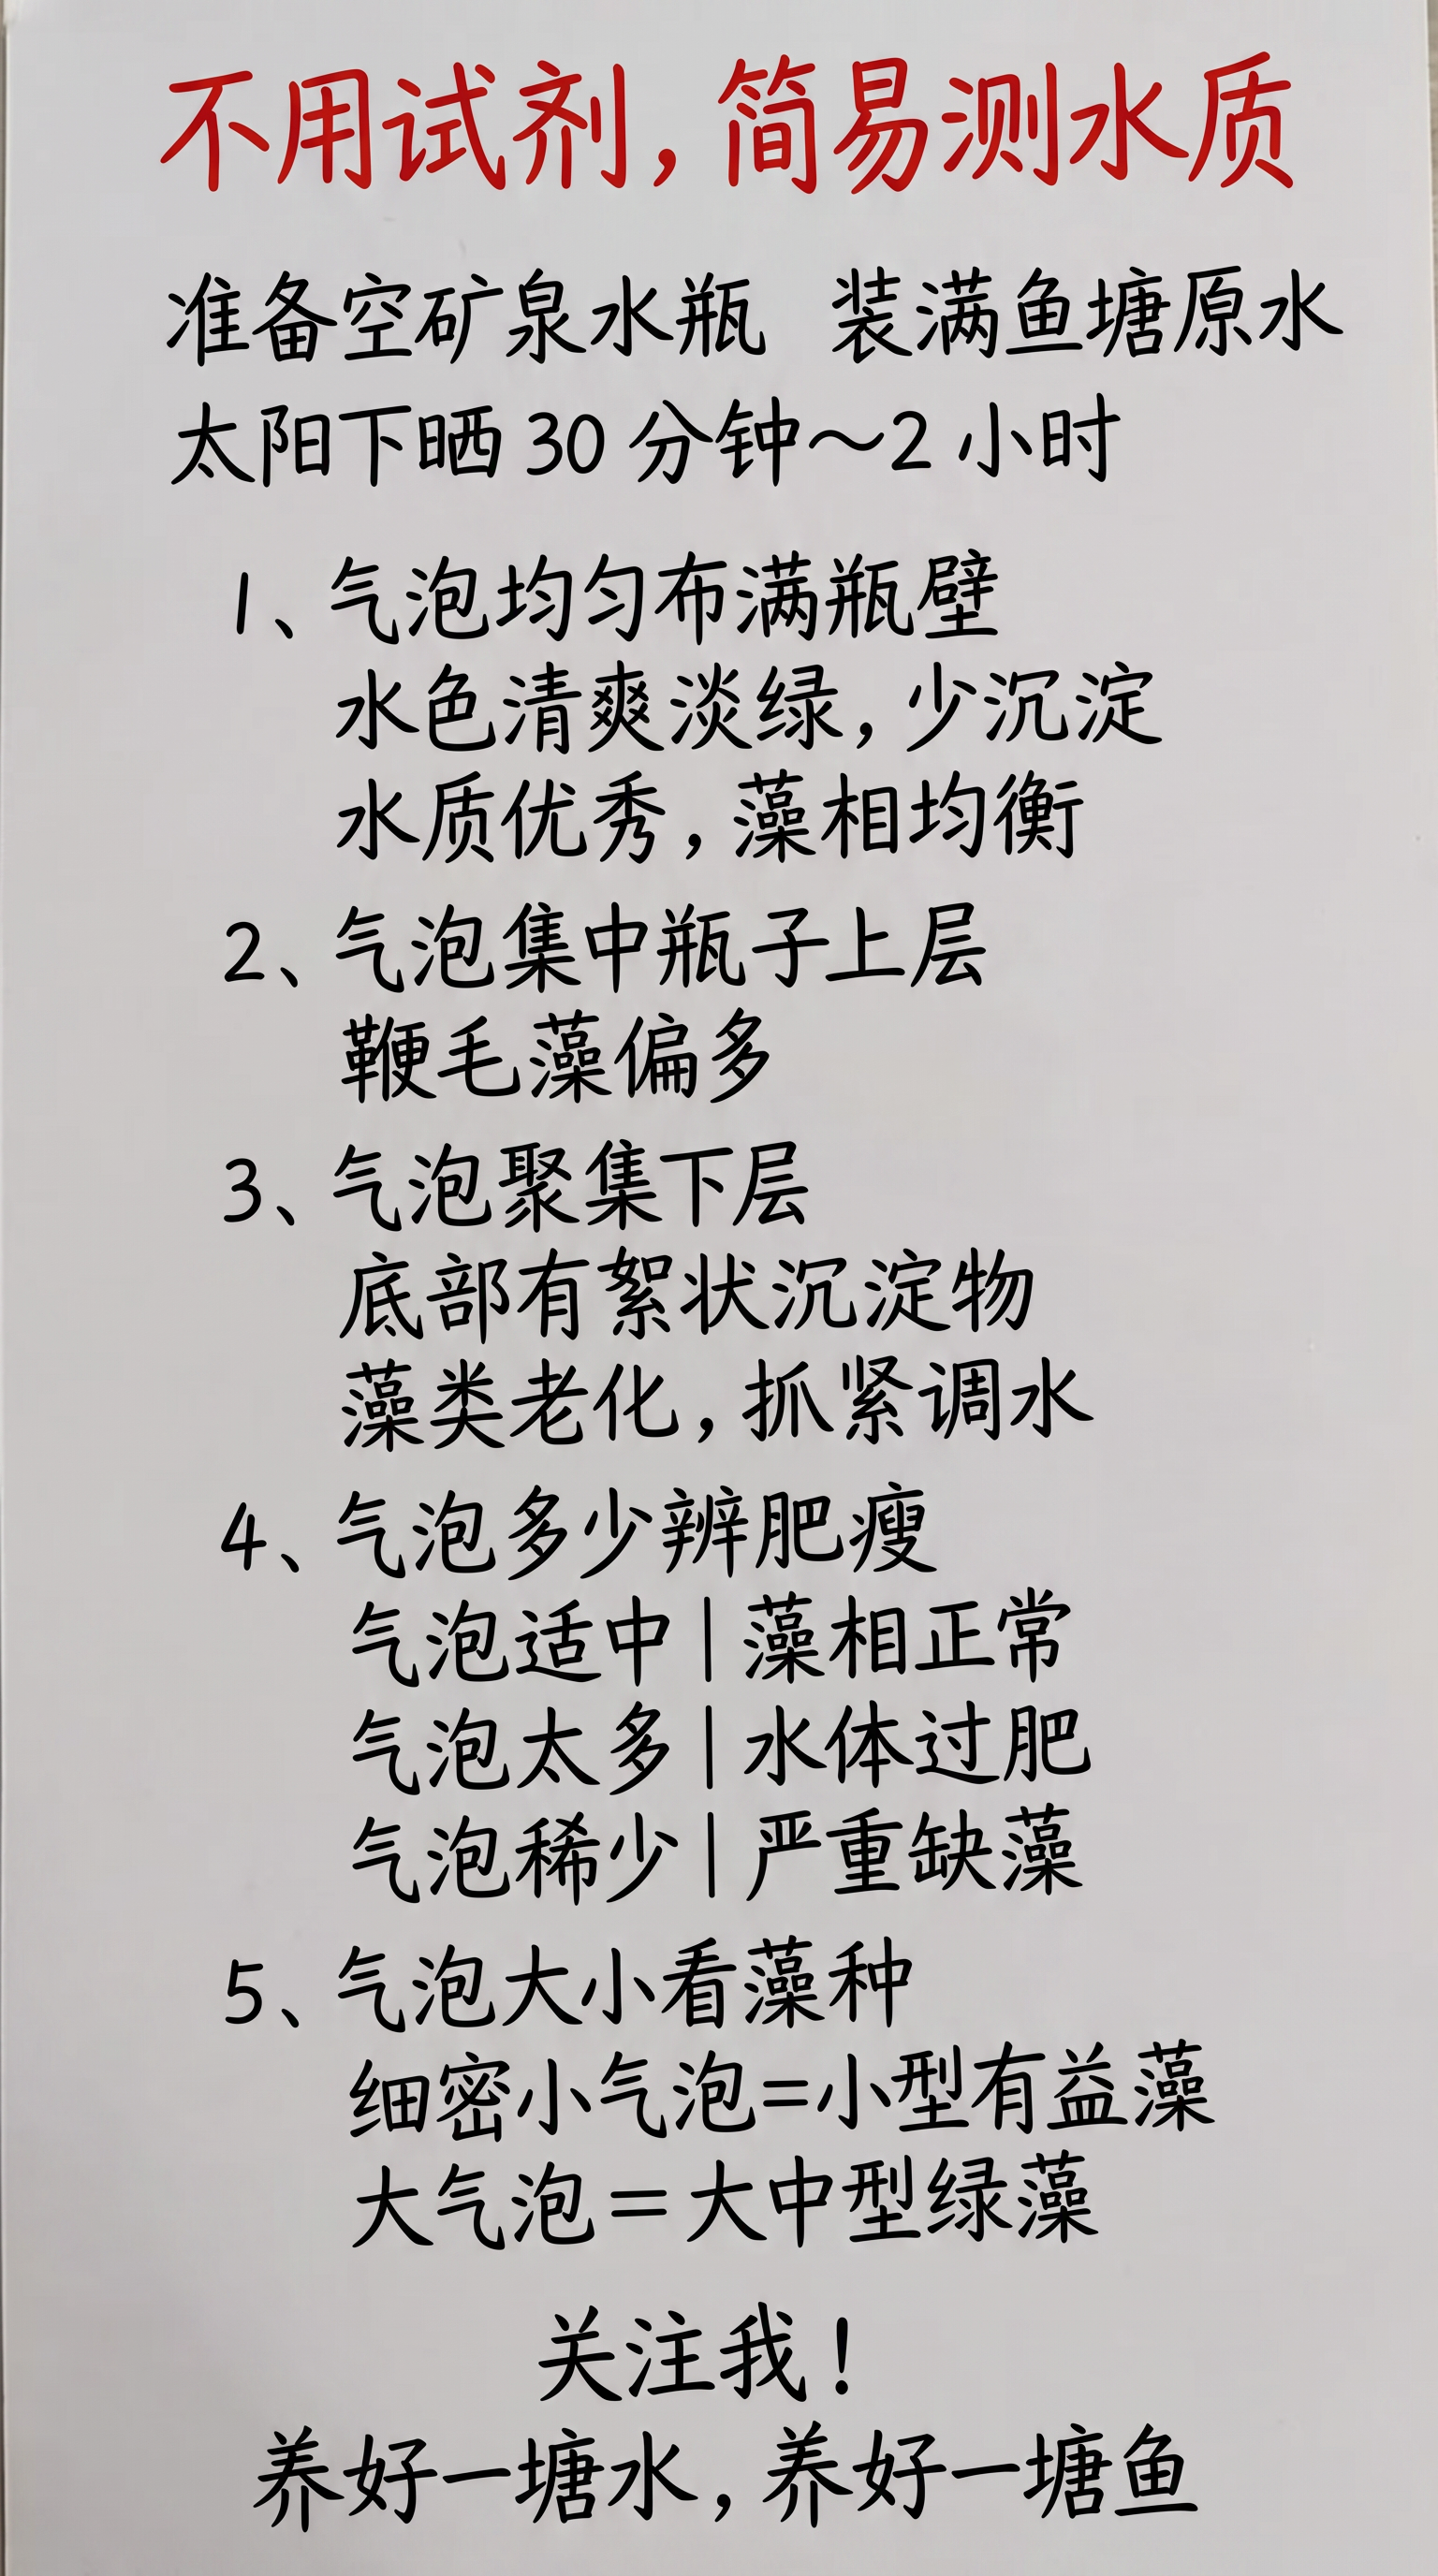 不用试剂，简易测水质
准备空矿泉水瓶 装满鱼塘原水
太阳下晒30分钟～2小时
1、气泡均匀布满瓶壁
水色清爽淡绿，少沉淀
水质优秀，藻相均衡
2、气泡集中瓶子上层
鞭毛藻偏多
3、气泡聚集下层
底部有絮状沉淀物
藻类老化，抓紧调水
4、气泡多少辨肥瘦
气泡适中|藻相正常
气泡太多|水体过肥
气泡稀少|严重缺藻
5、气泡大小看藻种
细密小气泡=小型有益藻
大气泡=大中型绿藻
关注我！
养好一塘水，养好一塘鱼